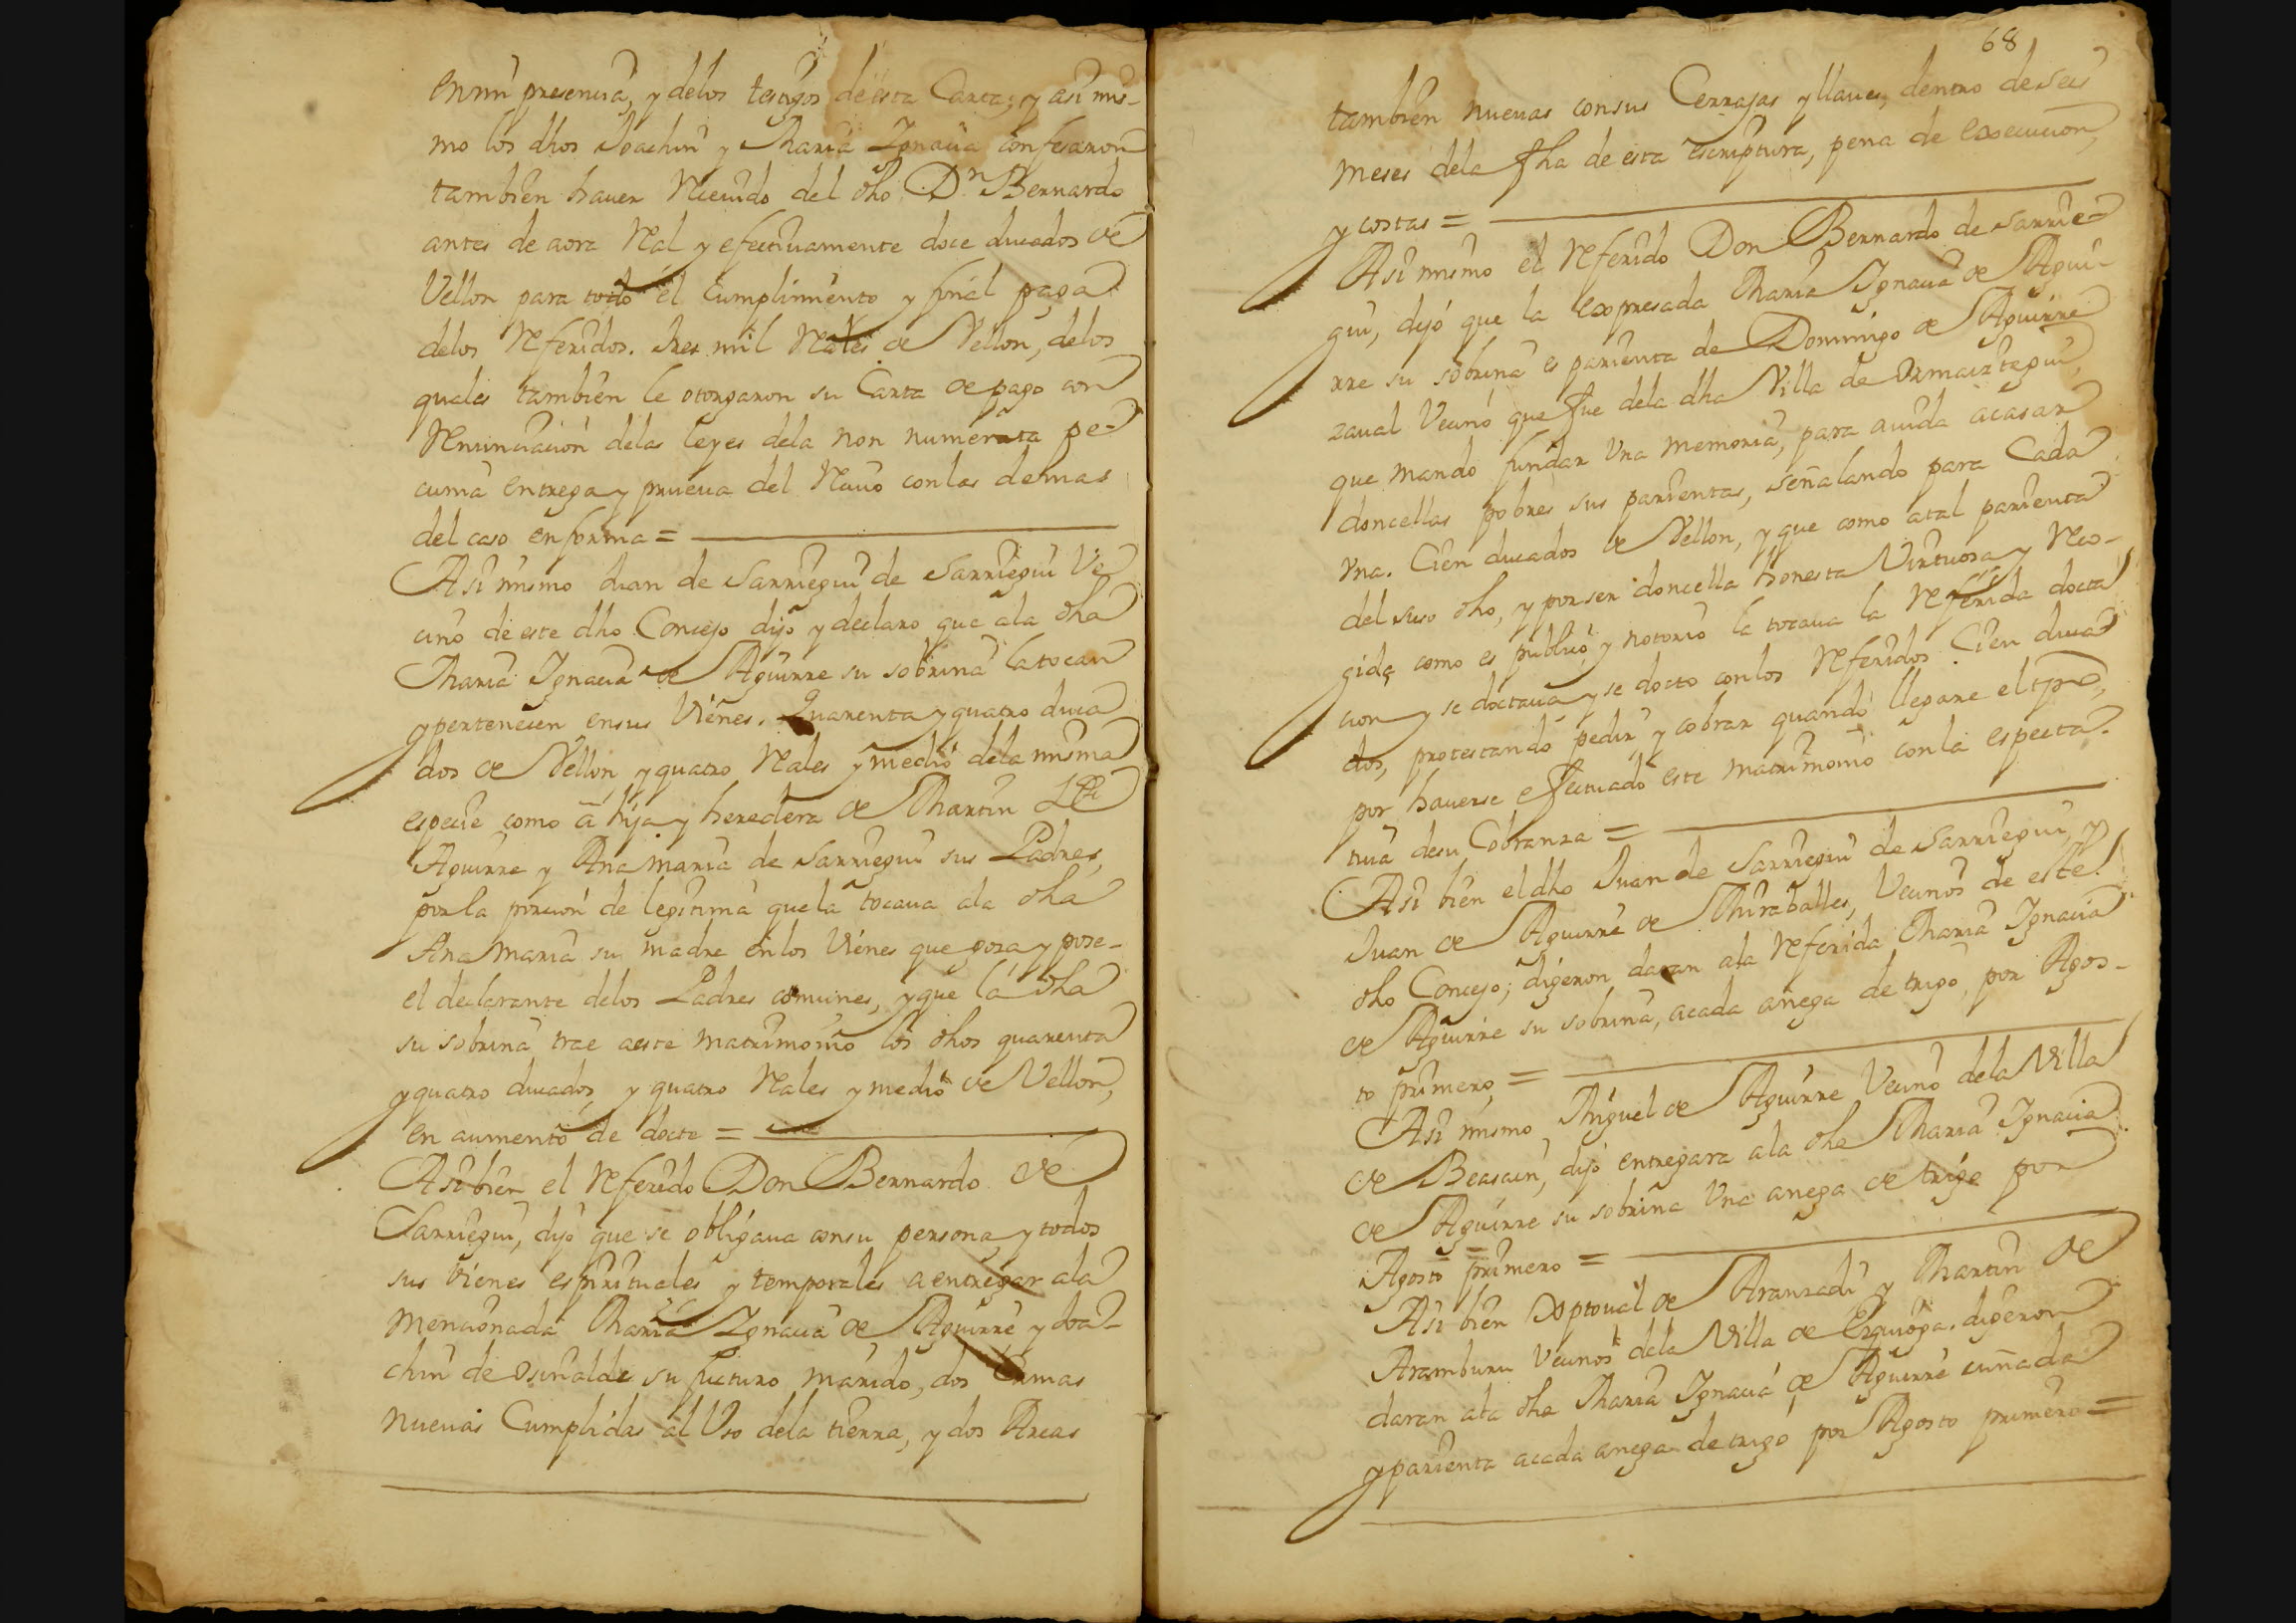 en mi presencia, y delos testigos de esta Carta; y asi mis-
mo los dhos Joachin y Maria Ignacia confesaron
tambien hauer Receuido del dho Dn Bernardo
antes de aora Real y efectiuamente doce ducados de
Vellon para todo el Cumplimiento y final paga
delos Referidos. tres mil Reales de Vellon, delos
quales tambien le otorgaron su Carta de pago con
Renunciacion delas leyes dela non numerata pe-
cunia entrega y prueua del Reciuo con las demas
del caso en forma =
Asi mismo Juan de Sarriegui de Sarriegui Ve
cino de este dho Concejo dijo y declaro que ala dha
Maria Ignacia de Aguirre su sobrina la tocan
y pertenecen en sus Vienes. Quarenta y quatro duca
dos de Vellon, y quatro Reales y medio dela misma
especie como a hija y heredera de Martin
Aguirre y Ana Maria de Sarriegui sus Padres,
por la porcion de legitima que la tocaua ala dha
Ana Maria su madre en los Vienes que goza y pose-
el declarante delos Padres comunes, y que la dha
su sobrina trae aeste matrimonio los dhos quarenta
y quatro ducados, y quatro Reales y medio de Vellon,
en aumento de docte =
Asi bien el Referido Don Bernardo de
Sarriegui, dijo que se obligaua con su persona, y todos
sus vienes espirituales y temporales a entregar ala
mencionada Maria Ignacia de Aguirre y Joa-
chin de Osinalde su futuro marido, dos Camas
nueuas Cumplidas al Vso dela tierra, y dos Arcas
68
tambien nueuas con sus Cerrajas y llaues, dentro de seis
meses dela fha de esta escriptura, pena de execucion,
y costas =
Asi mismo el Referido Don Bernardo de Sarrie-
gui, dijo que la expresada Maria Ignacia de Agui-
rre su sobrina es parienta de Domingo de Aguirre
zaual Vecino que fue dela dha Villa de Ormaiztegui,
que mando fundar Vna memoria, para auida acasar
doncellas pobres sus parientas, señalando para Cada
Vna. Cien ducados de Vellon, y que como atal parienta
del suso dho, y por ser doncella honesta Virtuosa y Reco-
gida como es publico, y notorio la tocaua la Referida docta
cion y se doctaua y se docto con los Referidos. Cien duca
dos, protestando pedir, y cobrar quando llegare el tpo,
por hauerse efectuado este matrimonio con la espectta-
tiua desu Cobranza =
Asi bien el dho Juan de Sarriegui de Sarriegui, y
Juan de Aguirre de Miraballes, Vecinos de este
dho Concejo; digeron daran ala Referida Maria Ignacia
de Aguirre su sobrina, acada anega de trigo, por Agos-
to primero, =
Asi mismo, Miguel de Aguirre Vecino dela Villa
de Beasain, dijo entregara ala dha Maria Ignacia
de Aguirre su sobrina Vna anega de trigo por
Agosto primero =
Asi bien Xptoual de Aranzadi y Martin de
Aramburu Vecinos dela Villa de Ezquioga. digeron
daran ala dha Maria Ignacia de Aguirre cuñada
y parienta acada anega de trigo por Agosto primero =